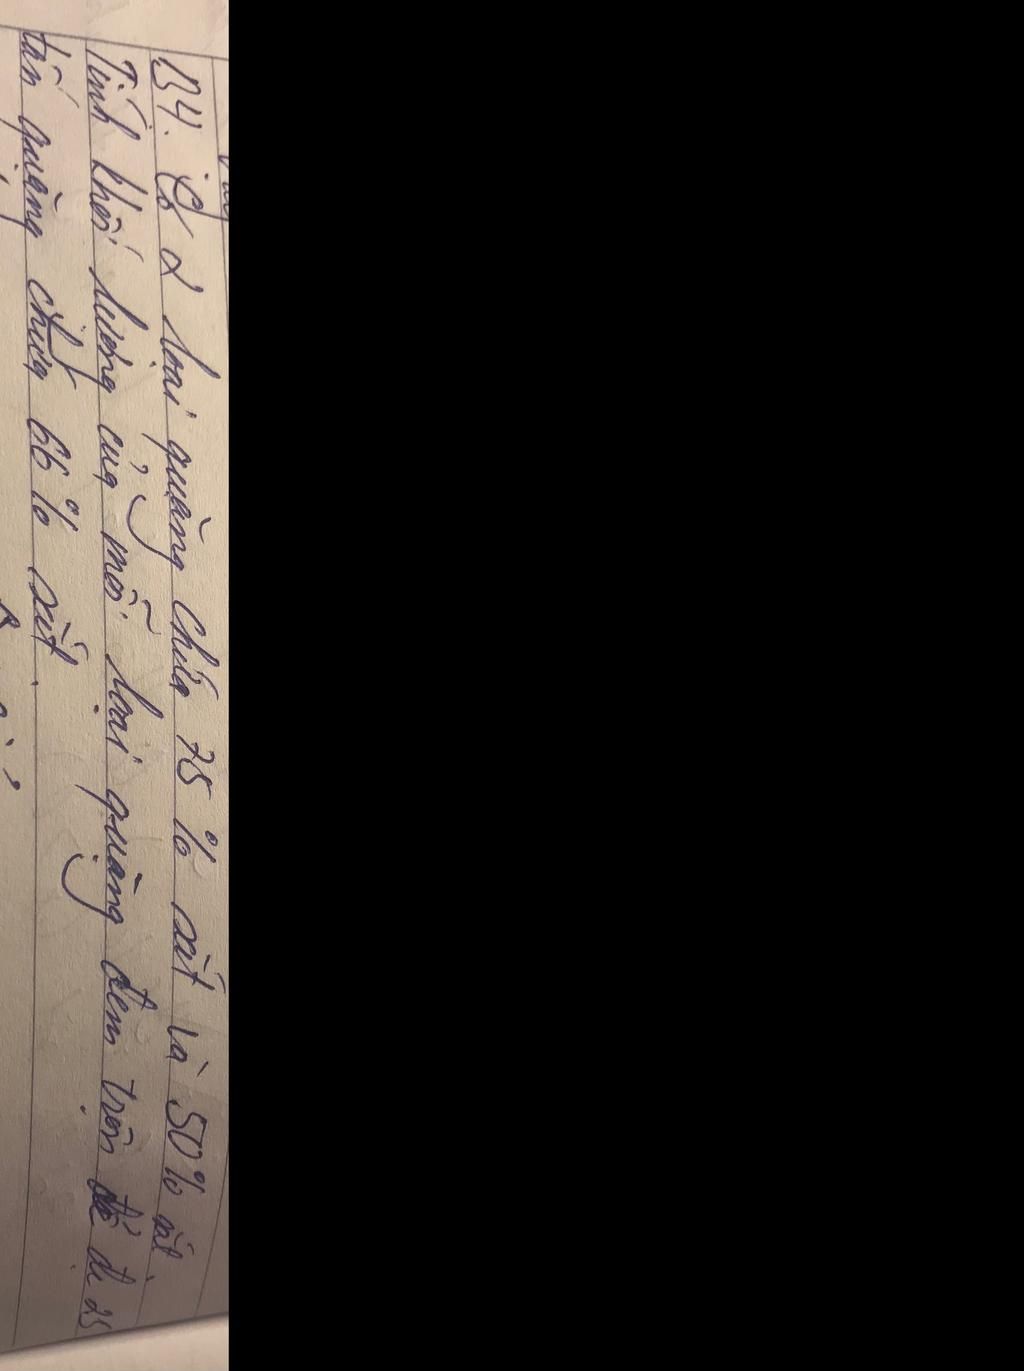 B4. Có 2 loại quặng chứa 75% sắt và 50% sắt.
Tính khối lượng của mỗi loại quặng đem trộn để đc 25
tấn quặng chứa 66% sắt.